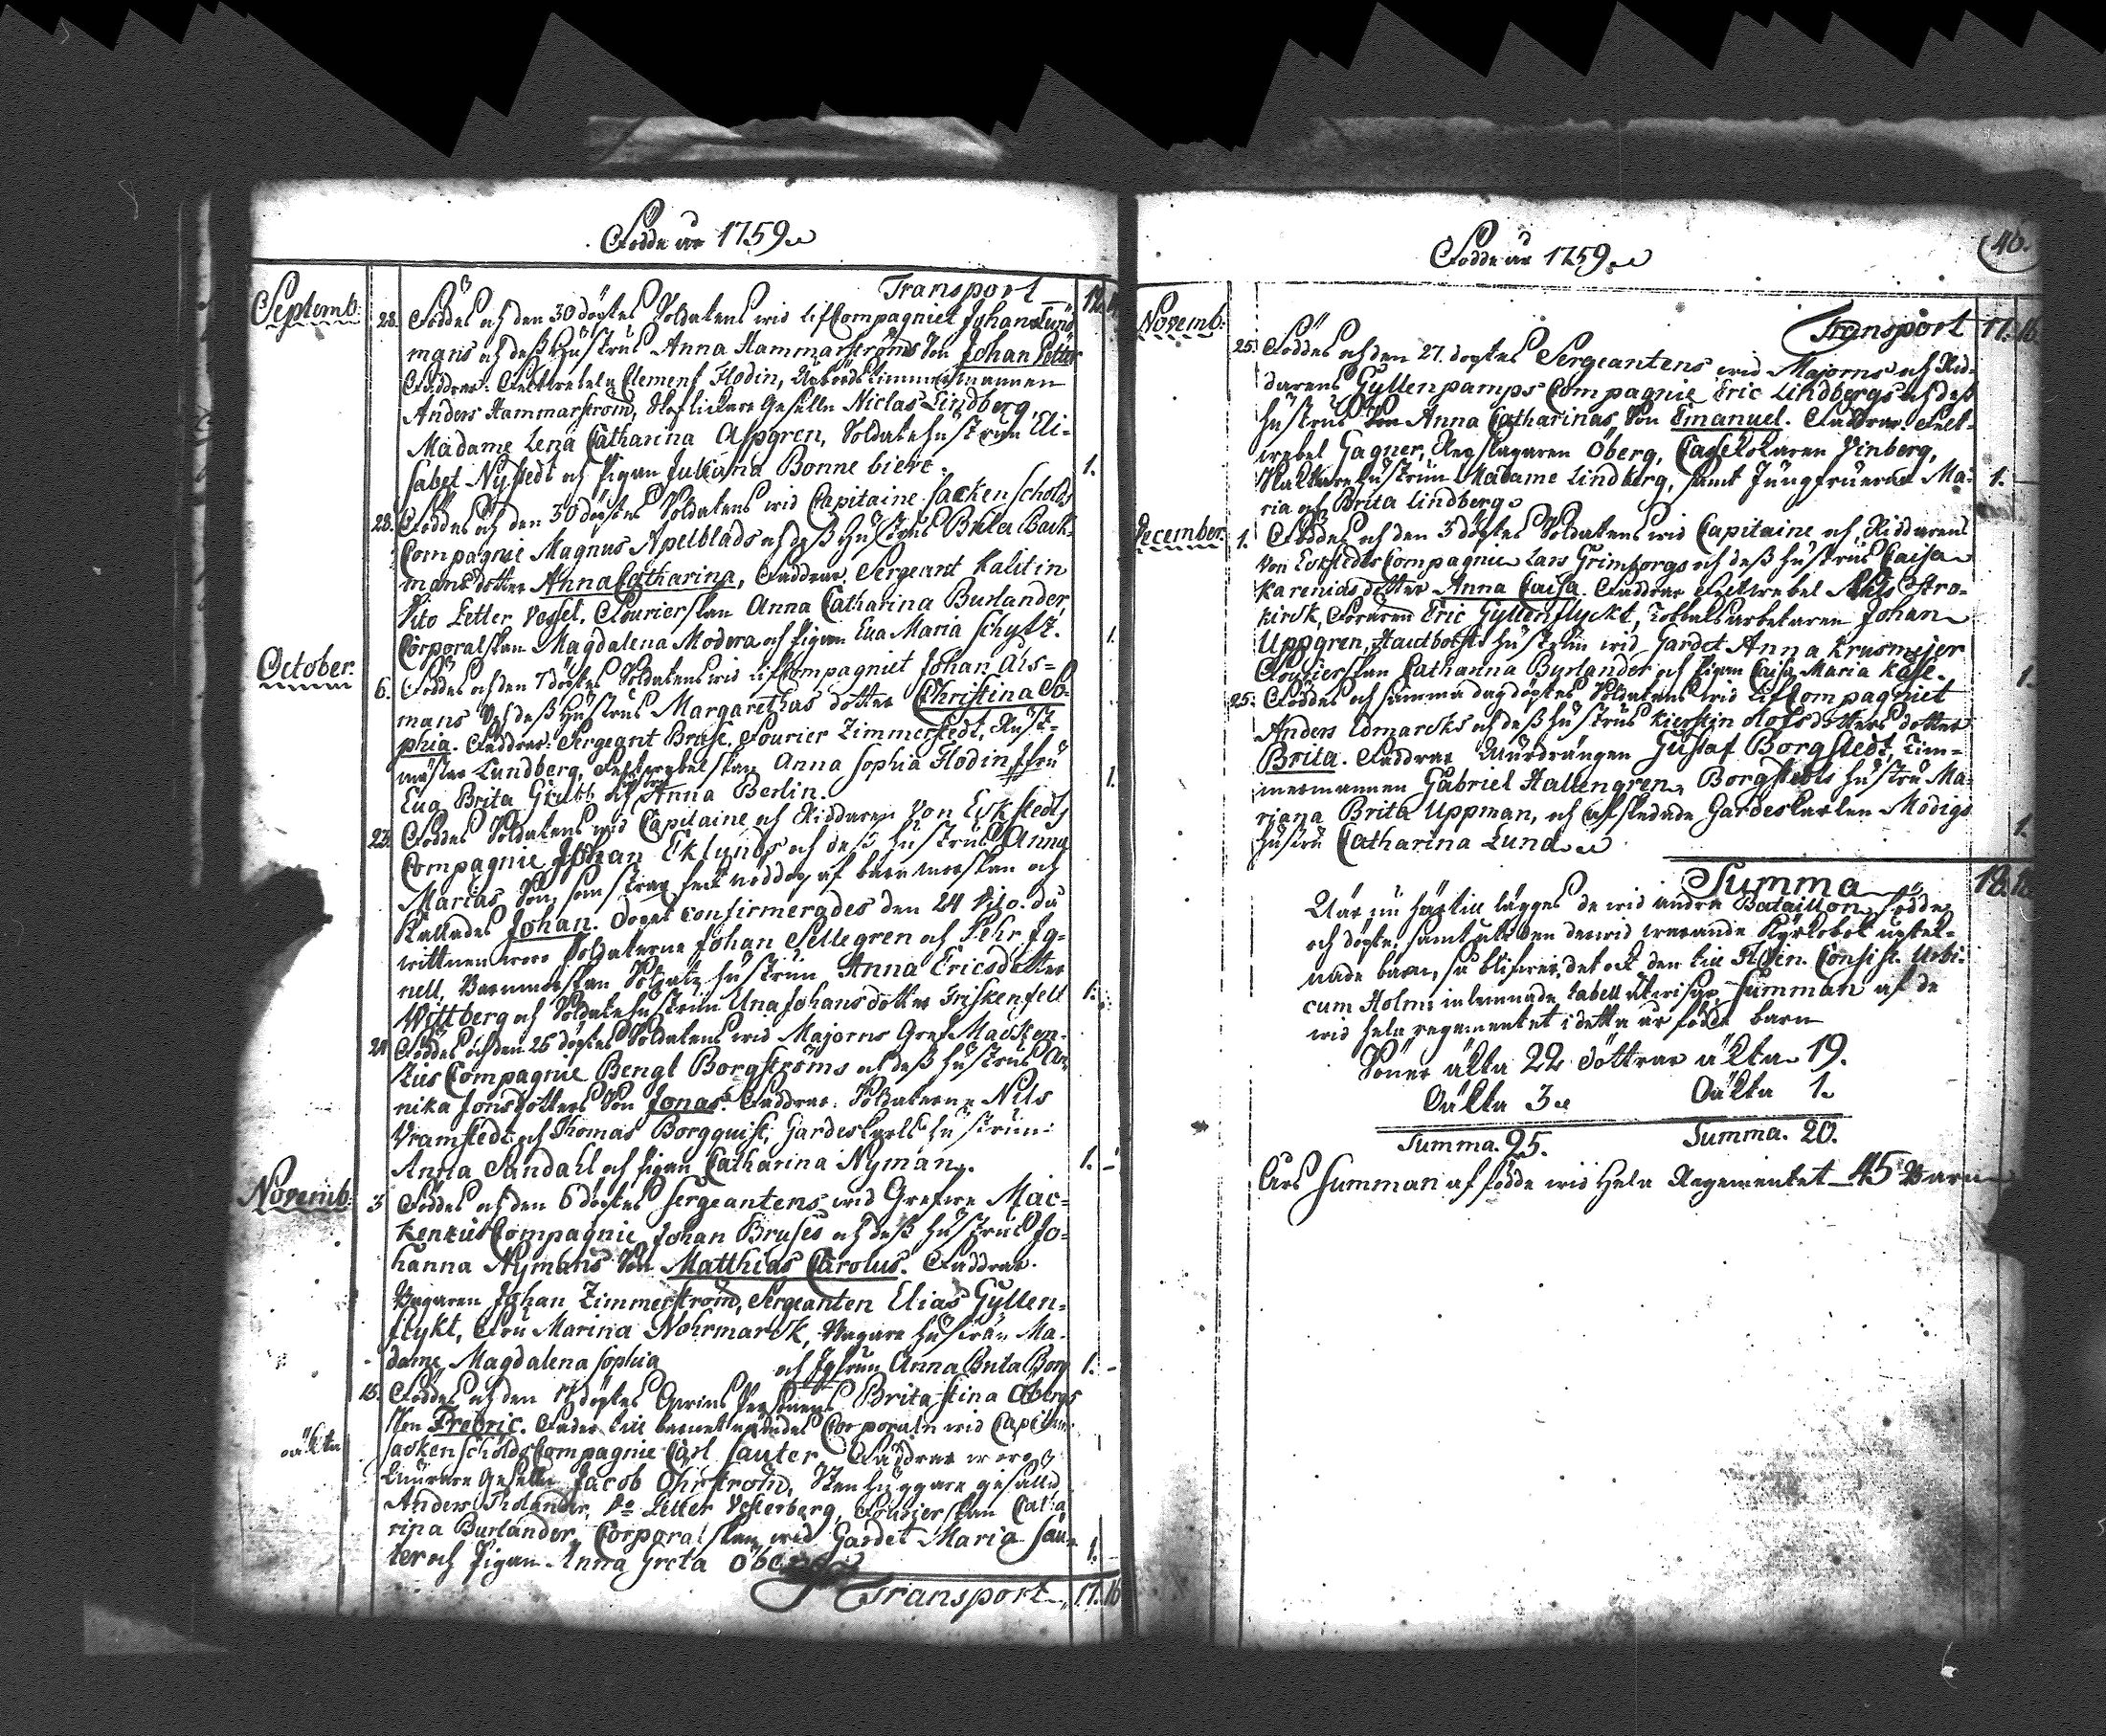 Födde år 1759
Transport 12.
Septemb. 28. Föddes och den 30 döptes Soldatens wid LifCompagniet Johan
mans och deß Hustrus Anna Hammarströms Son Johan Petter
Faddrar: Clement Flodin, Timmermannen
Anders Hammarström, Geselln Niclas Lindberg,
Madame Lena Catharina Aspgren, Soldatehustrun Eli-
sabet Nystedt och Pigan Juliana Bonne biere. 1.
28. Föddes och den 30 döptes Soldatens wid Capitaine Sackenscholds
Compagnie Magnus Apelblads och deß Hustrus Brita Back-
mans dotter Anna Catharina, Faddrar: Sergeant Kalitin
Dito Petter Vessel, Fourierskan Anna Catharina Burlander,
Corporalskan Magdalena Modera och Pigan Eva Maria Schultz. 1.
October. 6. Föddes och den 7 döptes Soldatens wid LifCompagniet Johan Als-
mans och deß Hustrus Margarethas dotter Christina So-
phia. Faddrar: Sergeant Bruse, Fourier Zimmerstedt, Rust-
mästar Lundberg, Feltwebelskan Anna Sophia Flodin Jfru
Eva Brita Grubb och Anna Berlin. 1.
23. Föddes Soldatens wid Capitaine och Riddaren Von Eckstedts
Compagnie Johan Eklunds och deß Hustrus Anna
Marias Son, som strax feck noddop af barnmorskan och
kallades Johan. Dopet confirmerades den 24 dito. då
wittnen woro Soldaterne Johan Sellegren och Pehr Ig-
nell, Barnmorskan Soldate hustrun Anna Ericsdotter
Wittberg och Soldatehustrun Una Johansdotter Friskenfelt 1.
24 Föddes och den 25 döptes Soldatens wid Majorns Gref Macken-
zius Compagnie Bengt Borgströms och deß hustrus An-
nika Jonsdotters Son Jonas. Faddrar: Soldaterne Nils
Vramstedt och Thomas Borgquist, Gardeskarls hustrun
Anna Sandahl och Pigan Catharina Nyman. 1. -
Novemb. 3 Föddes och den 6 döptes Sergeantens wid Grefwe Mac-
kenzius Compagnie Johan Bruses och deß hustrus Jo-
hanna Nymans Son Matthias Carolus. Faddrar.
Bagaren Johan Zimmerström, Sergeanten Elias Gyllen-
flykt, Fru Marina Nohrmarck, Bagare hustrun Ma-
dame Magdalena Sophia och Jgfrun Anna Brita Borg 1. -
15. Föddes och den 17 döptes Qwins Personens Brita Stina Öbergs
oäkta Son Fredric. Fader till barnet Corporaln wid Capitain
Sackenschölds Compagnie Carl Sauter Faddrar woro
Murare Geselln Jacob Öhrström, Stenhuggare gesälln
Anders Tholander, Do Petter Vesterberg, Fourierskan Catha
rina Burlander, Corporalskan wid Gardet Maria Sau-
ter och Pigan Anna Greta Öberg 1.
Transport 17. 16
Födde år 1759.
46.
Transport 17. 16
Novemb. 25. Föddes och den 27. döptes Sergeantens wid Majorns och Rid-
darens Gyllenpamps Compagnie Eric Lindbergs och deß
hustrus Anna Catharinas Son Emanuel. Faddrar: Felt-
webel Gagner, Repslagaren Öberg, Vinberg,
hustrun Madame Lindberg, samt Jungfruerne Ma- 1. -
ria och Brita Lindberg.
December. 1. Föddes och den 3 döptes Soldatens wid Capitaine och Riddarens
von Eckstedts Compagnie Lars Grimborgs och deß hustrus Caisa
Karenias dotter Anna Caisa. Faddrar Feltwebel Nils Stro-
kirck, Foraren Eric Gyllenflyckt, Johan
Uppgren, Hautboists hustrun wid Gardet Anna Krusmejer
Fourierskan Catharina Burlander och Pigan Caisa Maria Kåse. 1.
25. Föddes och samma dag döptes Soldatens wid LifCompagniet
Anders Edmarcks och deß hustrus Kierstin Olofsdotters dotter
Brita. Faddrar Murdrängen Gustaf Borgstedt, Tim-
mermannen Gabriel Hallengren, Borgstedts hustru Ma-
riana Brita Uppman, och afskedade Gardeskarlen Modigs
hustru Catharina Lund. 1.
Summa 18.
När nu härtill lägges de wid andra Bataillon födde
och döpte, samt uti den derwid warande Kyrkobok uptek-
nade barn, så blifwer det ock den till Hwen. Consist. Urbi-
cum Holm: inlemnade tabell utwisar, Summan af de
wid hela regementet i detta år födde barn
Söner äkta 22 Döttrar äkta 19.
Oäkta 3 Oäkta 1.
Summa. 25. Summa. 20.
Års Summan af födde wid Hela Regementet 45 Barn